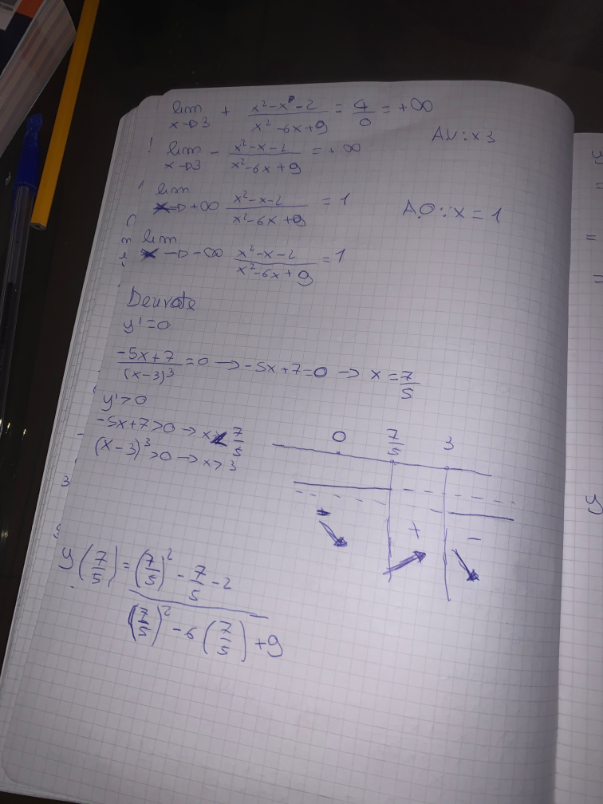 lim x→3 + x²-x-2 / x²-6x+9 = 4/0 = +∞
AV: x 3
lim x→3 - x²-x-2 / x²-6x+9 = +∞
lim x→+∞ x²-x-2 / x²-6x+9 = 1
A.O: x = 1
lim x→-∞ x²-x-2 / x²-6x+9 = 1
Derivate
y'=0
-5x+7 / (x-3)³ = 0 → -5x+7=0 → x = 7/5
y'>0
-5x+7>0 → x< 7/5
(x-3)³>0 → x>3
0 7/5 3
- + -
y(7/5) = (7/5)² - 7/5 - 2 / (7/5)² - 6(7/5) + 9